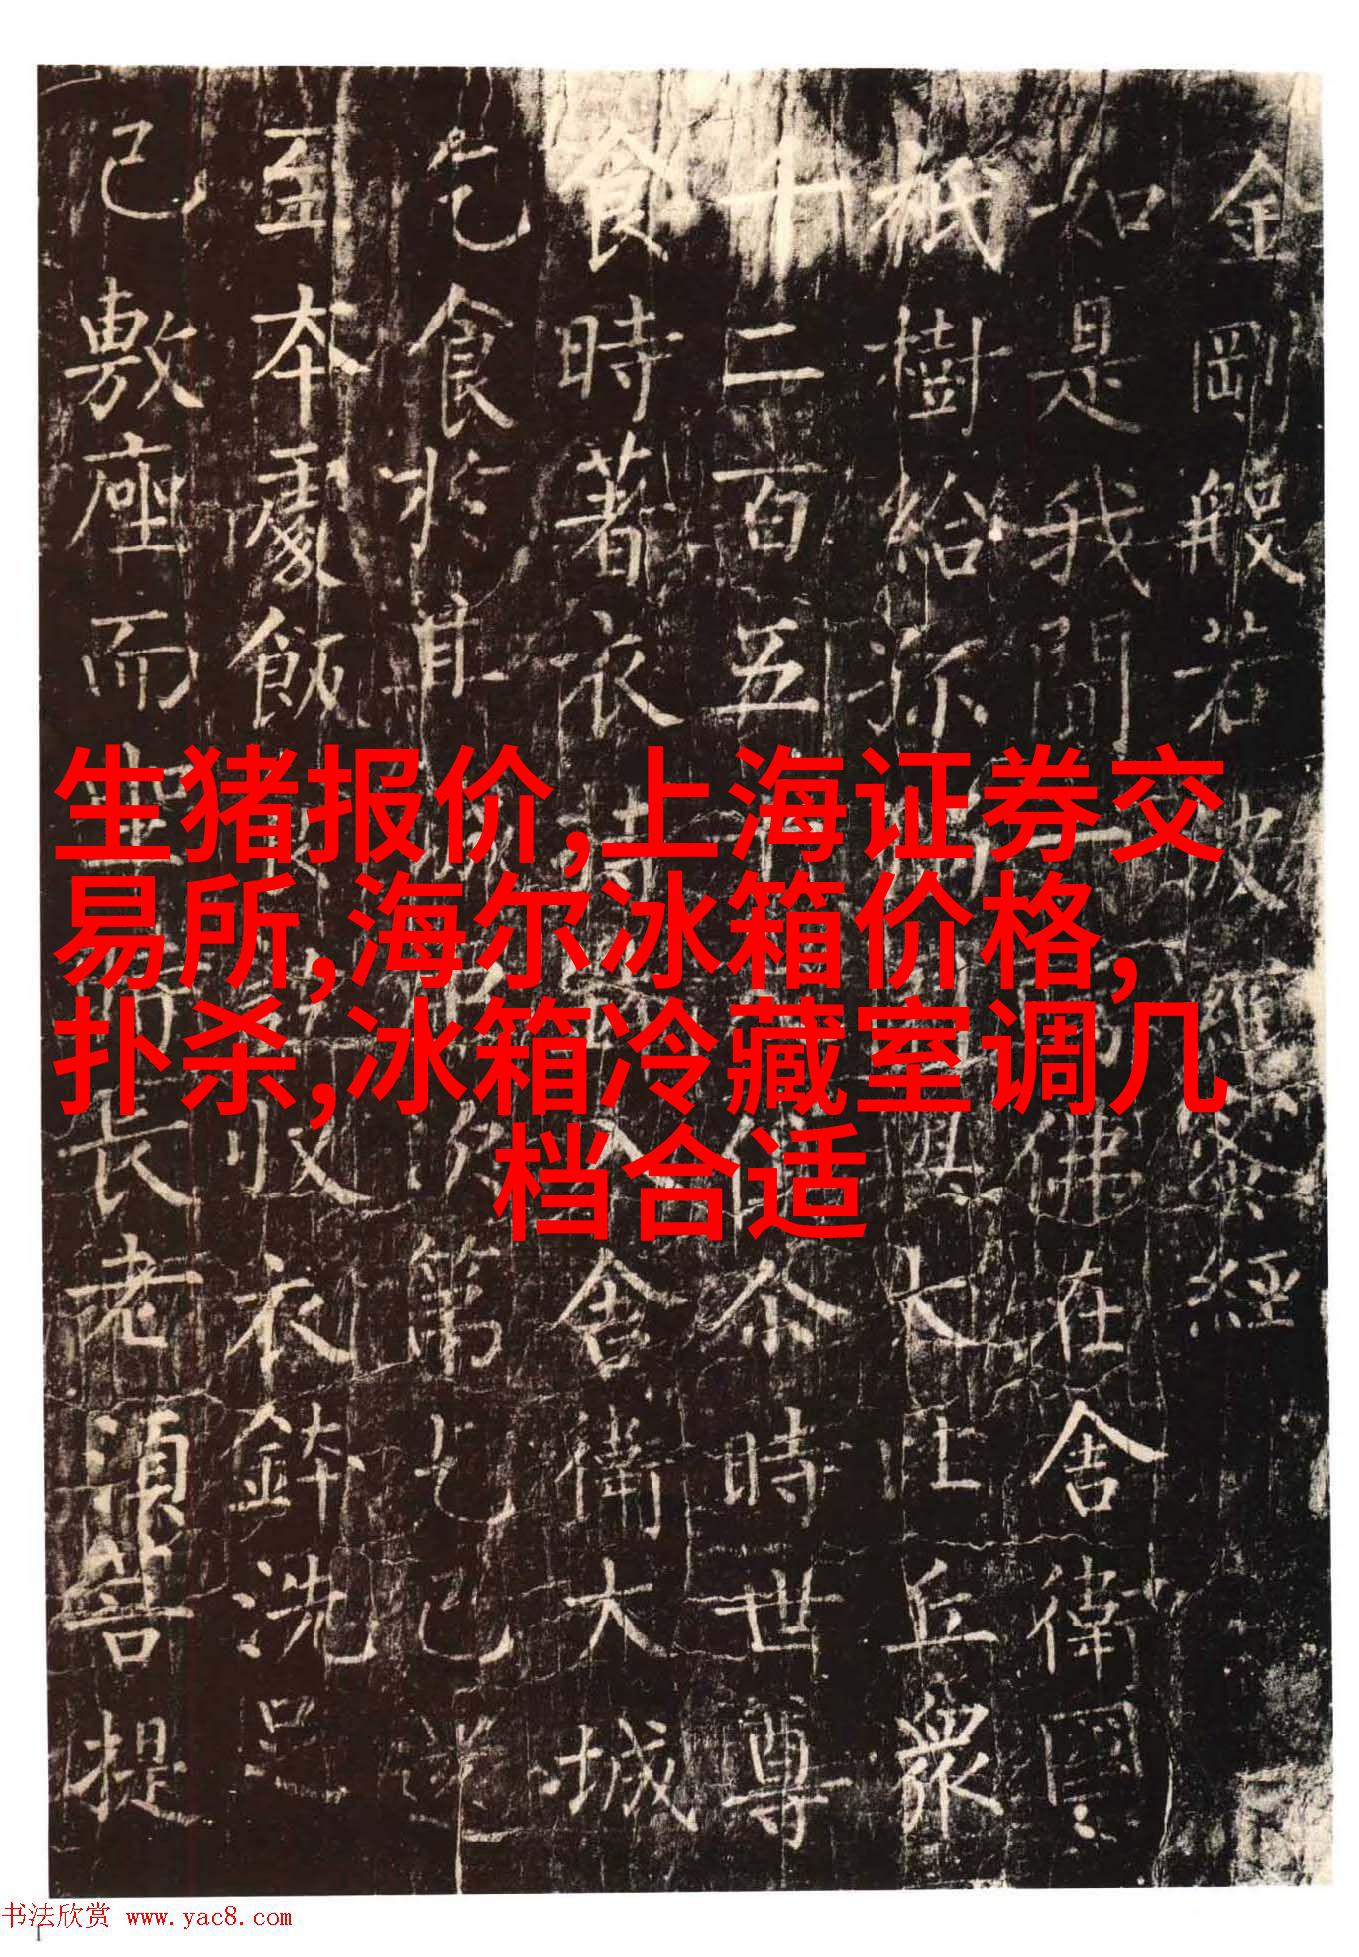 金剛般若波羅蜜經
如是我聞一佛在舍衛國
祇樹給孤大比丘衆
千二百五十俱尒時世尊
食時著衣持入舍衛大城
乞食於其城次第乞已還
至本處飯收衣鉢洗足
已敷座而坐時長老須菩提
生猪报价,上海证券交
易所,海尔冰箱价格,
扑杀,冰箱冷藏室调几
档合适
书法欣赏 www.yac8.com